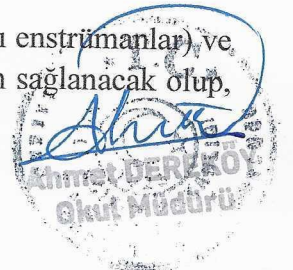 ı enstrümanlar) ve
n sağlanacak olup,
T.C.
Ahmet DEREKÖY
Okul Müdürü